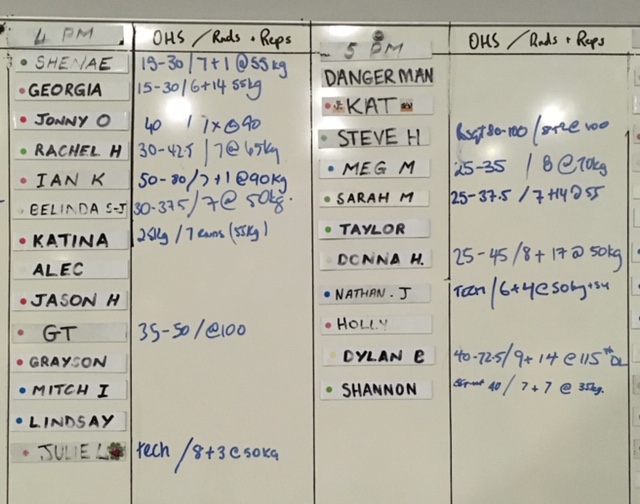 4 PM OHS / Rnds + Reps
SHENAE 15-30 / 7+1 @ 55kg
GEORGIA 15-30 / 6+14 55kg
JONNY O 40 / 7x @ 90
RACHEL H 30-42.5 / 7 @ 65kg
IAN K 50-80 / 7+1 @ 90kg
BELINDA S-J 30-37.5 / 7 @ 50kg
KATINA 25kg / 7 (55kg)
ALEC
JASON H
GT 35-50 / @100
GRAYSON
MITCH I
LINDSAY
JULIE L tech / 8+3 @ 50kg
5 PM OHS / Rnds + Reps
DANGERMAN
KAT
STEVE H 80-100 / @ 100
MEG M 25-35 / 8 @ 70kg
SARAH M 25-37.5 / 7+14 @ 55
TAYLOR
DONNA H. 25-45 / 8+17 @ 50kg
NATHAN. J Tech / 6+4 @ 50kg
HOLLY
DYLAN B 40-72.5 / 9+14 @ 115 DL
SHANNON 40 / 7+7 @ 35kg.